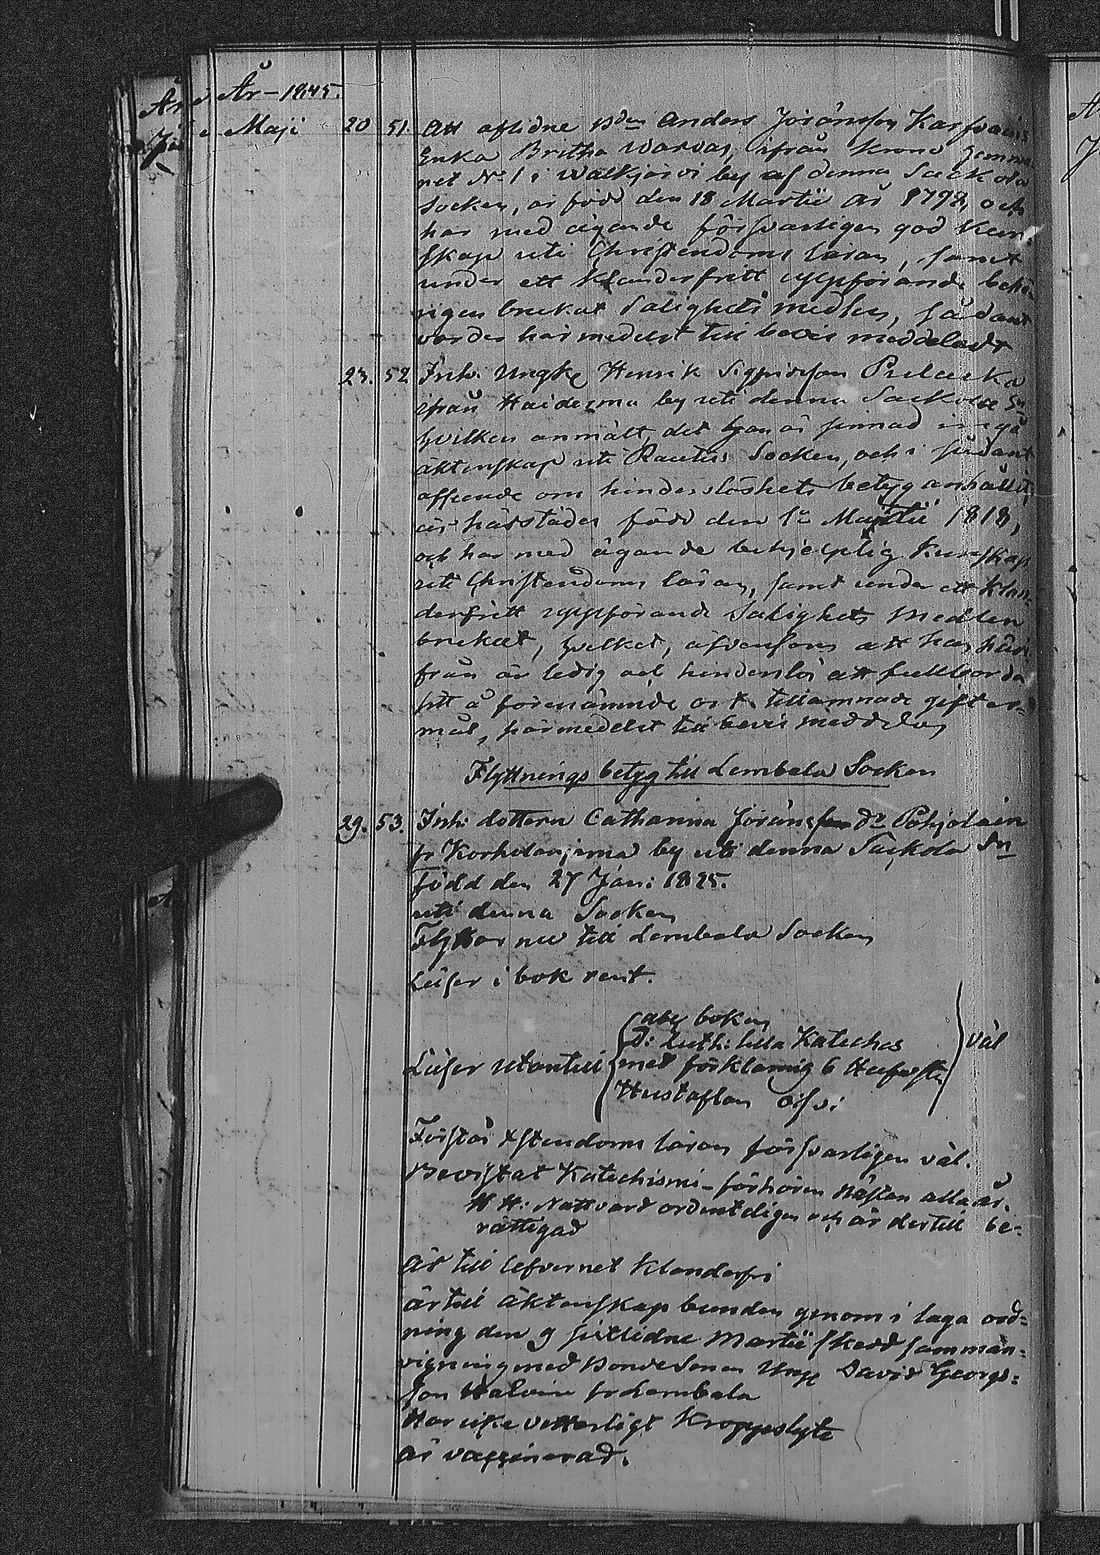 År 1845.
Maji 20 51. Att aflidne Bden Anders Jöransson Karfvais
Enka Britha Warvas, ifrån Krono Hemma
net No 1 i Walkjärvi by af denna Sackola
Socken, är född den 18 Martii år 1792, och
har med ägande försvarligen god Kun
skap uti Christendoms läran, samt
under ett klanderfritt uppförande behö
rigen brukat Salighets medlen, sådant
varder härmedelst till bevis meddeladt
23. 52 Inh: Ungke Henrik Sigfridsson
ifrån Haiderma by uti denna Sackola Sn
hvilken anmält, det han är sinnad ingå
äktenskap uti Rautus Socken, och i sådant
afseende om hinderslöshets betyg anhållit,
är härstädes född den 1e Martii 1818,
och har med ägande behjelplig Kunskap
uti Christendoms läran, samt under ett klan=
derfritt uppförande Salighets medlen
brukat, hvilket, äfvensom att han häri
från är ledig och hinderslös att fullborda
sitt å förenämnde ort tillämnade gifter=
mål, härmedelst till bevis meddelas
Flyttnings betyg till Lembala Socken
29. 53. Inh: dottern Catharina Jöransdr Pohjolain
fr by uti denna Sackola Sn
född den 27 Jan: 1825.
uti denna Socken
Flyttar nu till Lembala Socken
Läser i bok rent.
abc boken
D: Luth: lilla Kateches
Läser utantill med förklaring 6 Hufvst: väl
Hustaflan
Förstår Xstendoms läran försvarligen väl.
Bevistat Katechismi-förhören nästan alla år.
H H: Nattvard ordentligen och är dertill be=
rättigad
Är till lefvernet klanderfri
är till äktenskap bunden genom i laga ord=
ning den 9 sistlidne Martii skedd samman=
vigning med Bonde Sonen Ungk David Georgs=
son fr Lembala
Har icke vetterligt Kroppslyte
är vaccinerad.